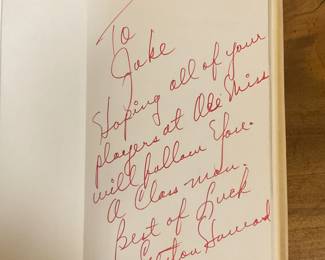 To
Jake
Hoping all of your
players at Ole Miss
will follow you.
A Class man.
Best of Luck
Howard